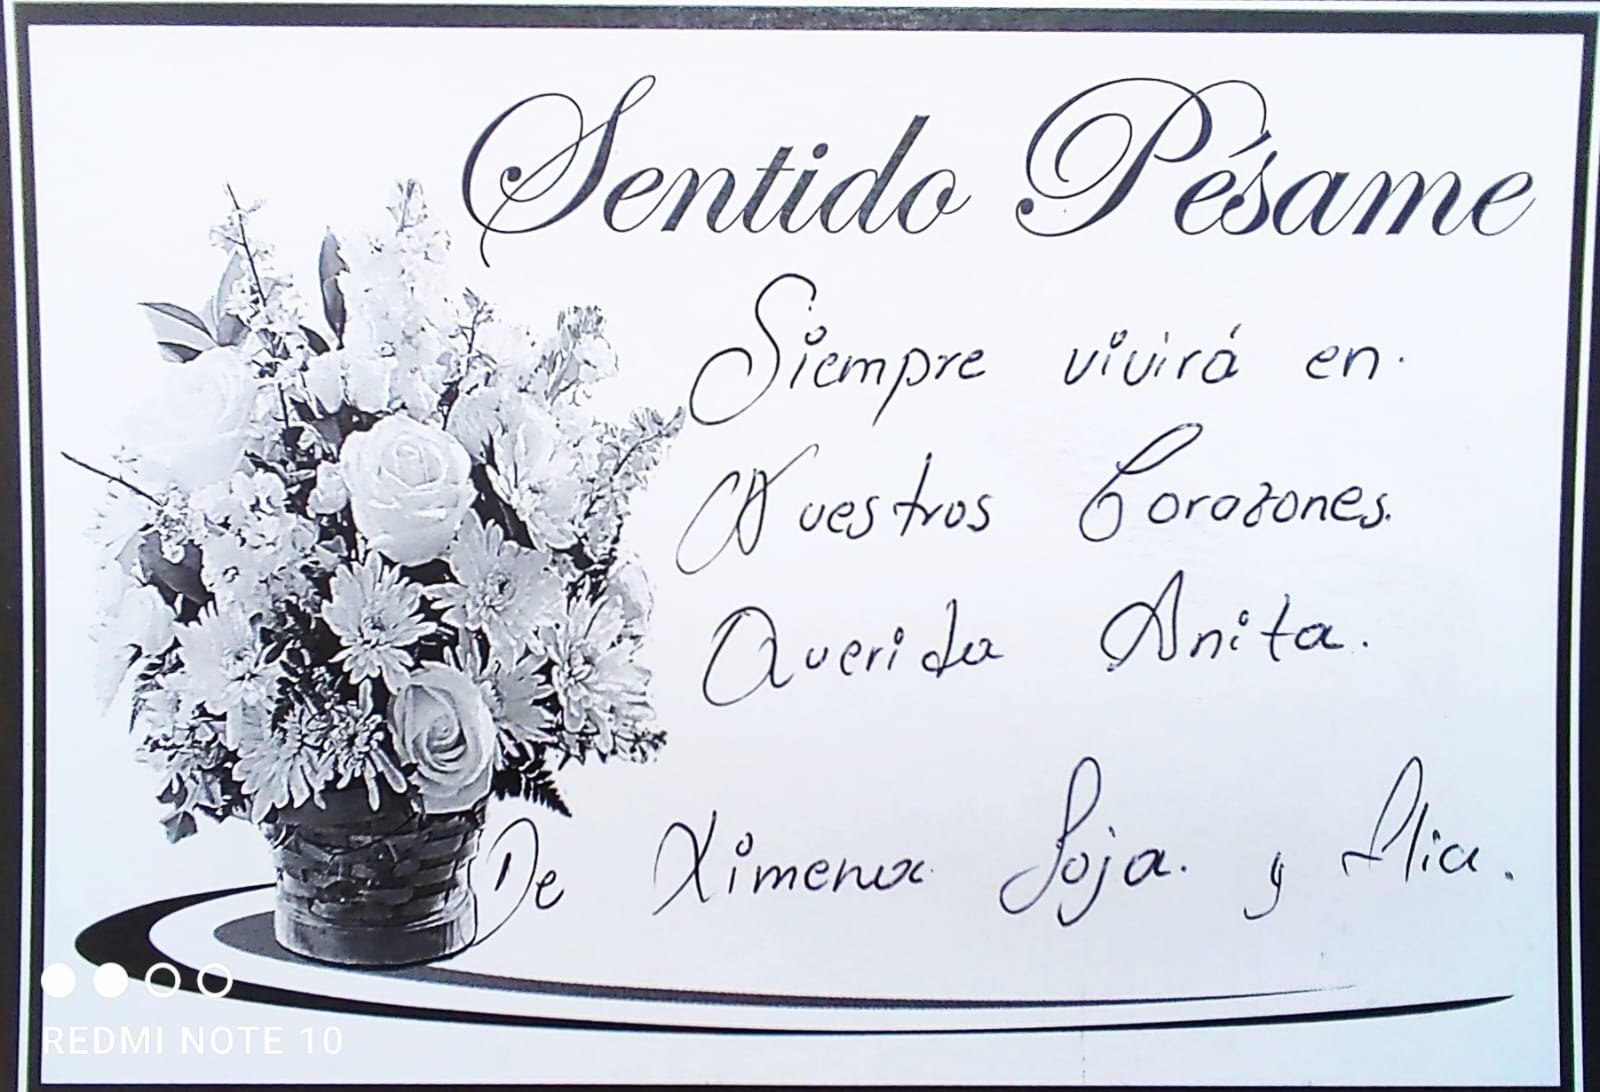 Sentido Pésame
Siempre vivirá en.
Nuestros Corazones.
Querida Anita.
De Ximena Loja. y
REDMI NOTE 10